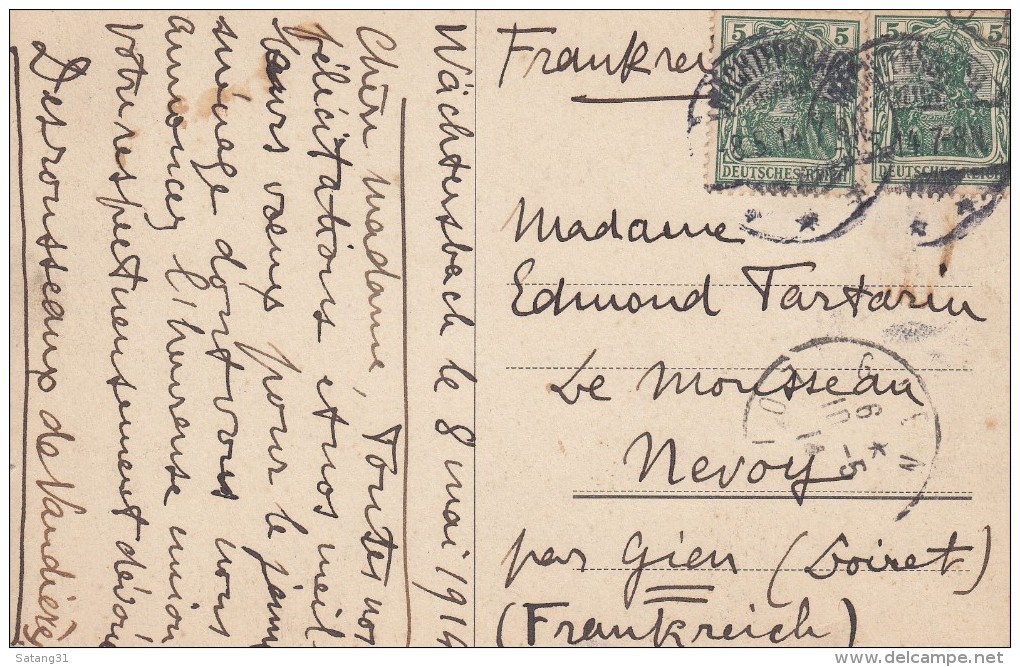 Wächtersbach le 8 mai 1914
Chère madame, Toutes nos
félicitations et nos meil
leurs vœux pour le jeune
ménage dont vous nous
annoncez l'heureuse union
Votre respectueusement dévoué
Desrousseaux de Vandières
Frankreich
5 5
DEUTSCHES REICH
5 5
DEUTSCHES REICH
-8.5.14.7-8N
5.14.7-8N
Madame
Edmond Tartarin
Le Mousseau
Nevoy
par Gien (Loiret)
(Frankreich)
Satang31